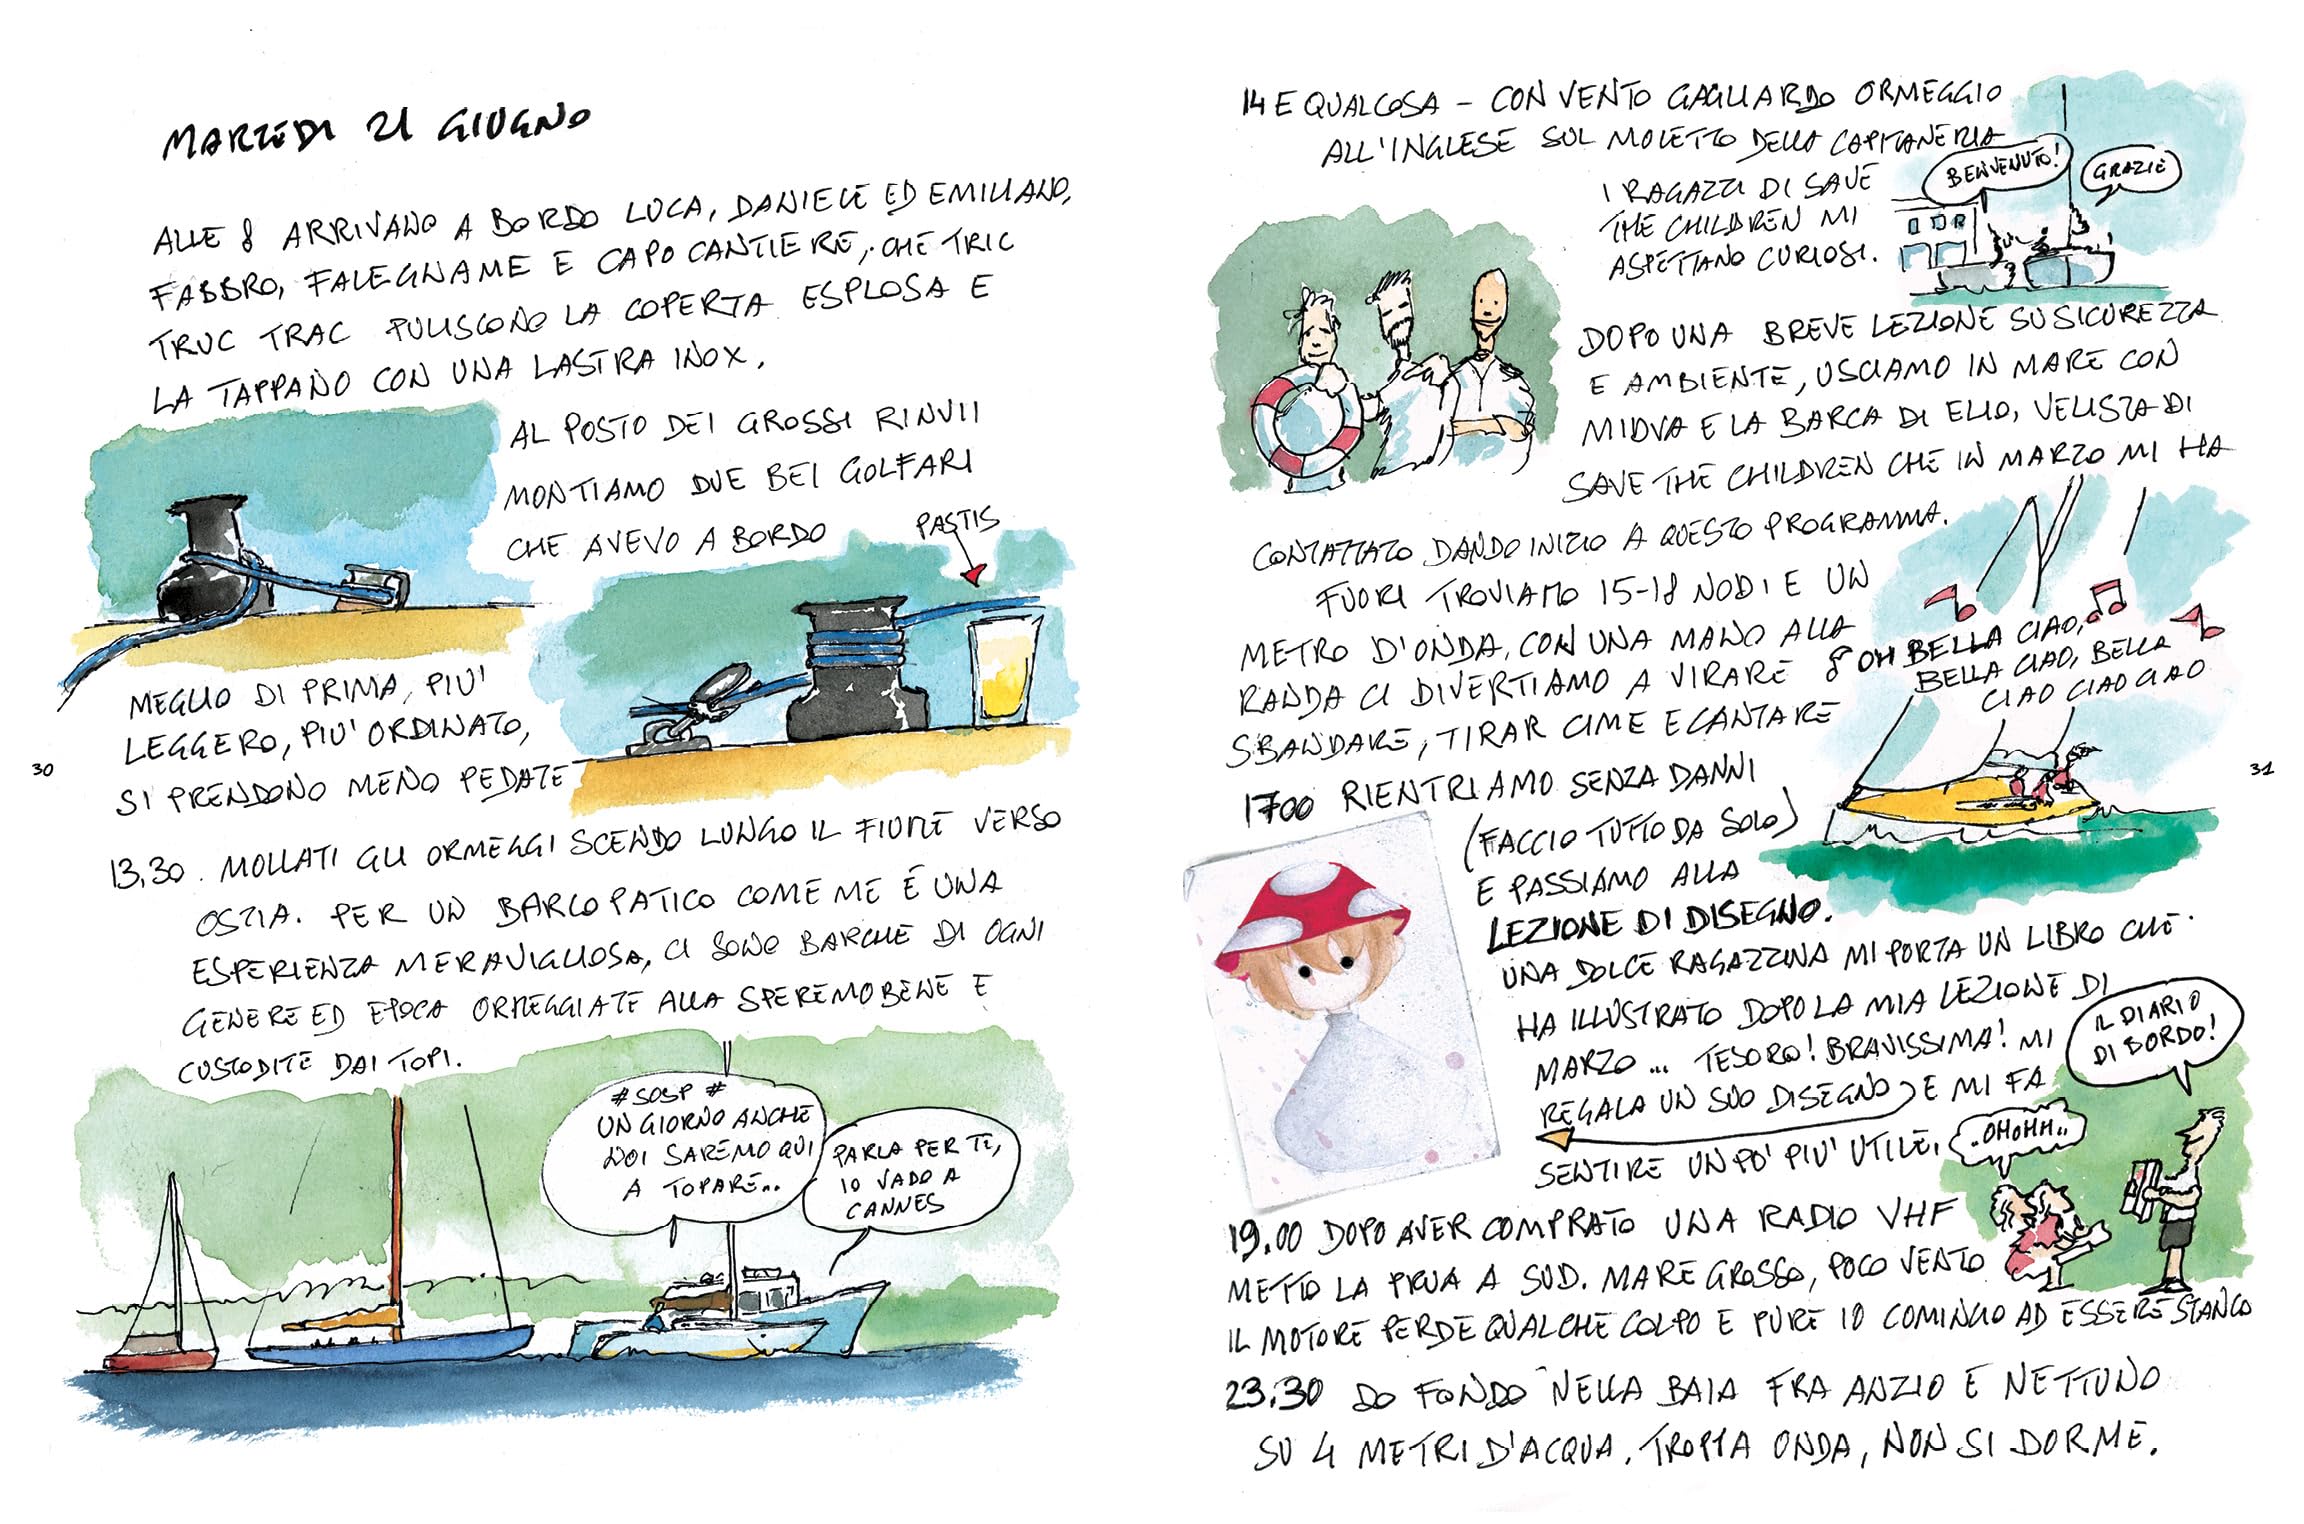 MARTEDI 21 GIUGNO
ALLE 8 ARRIVANO A BORDO LUCA, DANIELE ED EMILIANO,
FABBRO, FALEGNAME E CAPO CANTIERE, CHE TRIC
TRUC TRAC PULISCONO LA COPERTA ESPLOSA E
LA TAPPANO CON UNA LASTRA INOX.
AL POSTO DEI GROSSI RINVII
MONTIAMO DUE BEI GOLFARI
CHE AVEVO A BORDO
PASTIS
MEGLIO DI PRIMA, PIU'
LEGGERO, PIU' ORDINATO,
SI PRENDONO MENO PEDATE
30
13.30. MOLLATI GLI ORMEGGI SCENDO LUNGO IL FIUME VERSO
OSTIA. PER UN BARCOPATICO COME ME É UNA
ESPERIENZA MERAVIGLIOSA, CI SONO BARCHE DI OGNI
GENERE ED EPOCA ORMEGGIATE ALLA SPEREMOBENE E
CUSTODITE DAI TOPI.
#SOSP #
UN GIORNO ANCHE
NOI SAREMO QUI
A TOPARE...
PARLA PER TE,
IO VADO A
CANNES
14 E QUALCOSA - CON VENTO GAGLIARDO ORMEGGIO
ALL'INGLESE SUL MOLETTO DELLA CAPITANERIA
BENVENUTO!
GRAZIE
I RAGAZZI DI SAVE
THE CHILDREN MI
ASPETTANO CURIOSI.
DOPO UNA BREVE LEZIONE SU SICUREZZA
E AMBIENTE, USCIAMO IN MARE CON
MIDVA E LA BARCA DI ELIO, VELISTA DI
SAVE THE CHILDREN CHE IN MARZO MI HA
CONTATTATO DANDO INIZIO A QUESTO PROGRAMMA.
FUORI TROVIAMO 15-18 NODI E UN
METRO D'ONDA, CON UNA MANO ALLA
RANDA CI DIVERTIAMO A VIRARE
SBANDARE, TIRAR CIME E CANTARE
OH BELLA CIAO,
BELLA CIAO, BELLA
CIAO CIAO CIAO
1700 RIENTRIAMO SENZA DANNI
(FACCIO TUTTO DA SOLO)
E PASSIAMO ALLA
LEZIONE DI DISEGNO.
31
UNA DOLCE RAGAZZINA MI PORTA UN LIBRO CHE
HA ILLUSTRATO DOPO LA MIA LEZIONE DI
MARZO... TESORO! BRAVISSIMA! MI
REGALA UN SUO DISEGNO E MI FA
SENTIRE UN PO' PIU' UTILE.
IL DIARIO
DI BORDO!
..OHOHH..
19.00 DOPO AVER COMPRATO UNA RADIO VHF
METTO LA PRUA A SUD. MARE GROSSO, POCO VENTO
IL MOTORE PERDE QUALCHE COLPO E PURE IO COMINCIO AD ESSERE STANCO
23.30 DO FONDO NELLA BAIA FRA ANZIO E NETTUNO
SU 4 METRI D'ACQUA. TROPPA ONDA, NON SI DORME.